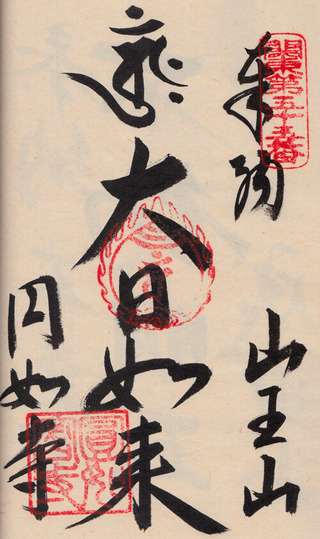 関東第五十五番
奉納
山王山
大日如来
円如寺